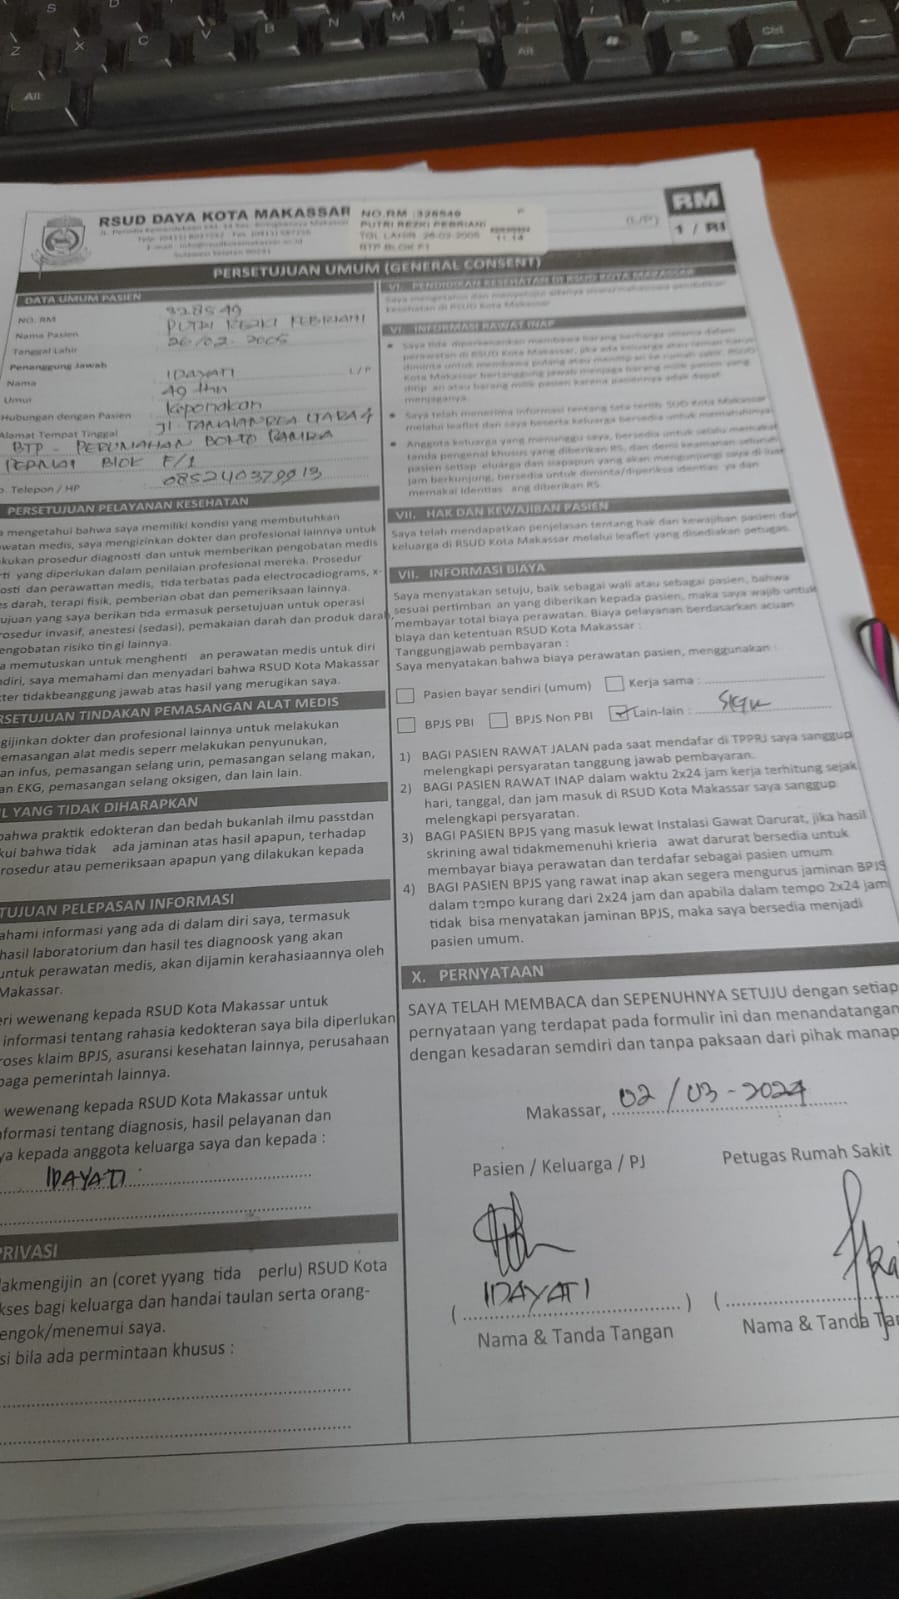 RSUD DAYA KOTA MAKASSAR
NO.RM :328549
PUTRI REZKI FEBRIANI
TGL LAHIR 26-02-2005
11:14
BTP BLOK F1
(L/P)
RM
1 / RI
PERSETUJUAN UMUM (GENERAL CONSENT)
DATA UMUM PASIEN
NO. RM 328549
Nama Pasien PUTRI REZKI FEBRIANI
Tanggal Lahir 26/02-2005
Penanggung Jawab
Nama IDAYATI L/P
Umur 49 thn
Hubungan dengan Pasien keponakan
Alamat Tempat Tinggal Jl TAMALANREA UTARA 4
BTP - PERUMAHAN BONTO RAMBA
BLOK F/1
. Telepon / HP
PERSETUJUAN PELAYANAN KESEHATAN
mengetahui bahwa saya memiliki kondisi yang membutuhkan
watan medis, saya mengizinkan dokter dan profesional lainnya untuk
kukan prosedur diagnosti dan untuk memberikan pengobatan medis
rti yang diperlukan dalam penilaian profesional mereka. Prosedur
osti dan perawattan medis, tida terbatas pada electrocadiograms, x-
es darah, terapi fisik, pemberian obat dan pemeriksaan lainnya.
ujuan yang saya berikan tida ermasuk persetujuan untuk operasi
rosedur invasif, anestesi (sedasi), pemakaian darah dan produk darah,
engobatan risiko tin gi lainnya.
a memutuskan untuk menghenti an perawatan medis untuk diri
ndiri, saya memahami dan menyadari bahwa RSUD Kota Makassar
ter tidakbeanggung jawab atas hasil yang merugikan saya.
RSETUJUAN TINDAKAN PEMASANGAN ALAT MEDIS
gijinkan dokter dan profesional lainnya untuk melakukan
emasangan alat medis seperr melakukan penyunukan,
an infus, pemasangan selang urin, pemasangan selang makan,
an EKG, pemasangan selang oksigen, dan lain lain.
L YANG TIDAK DIHARAPKAN
bahwa praktik edokteran dan bedah bukanlah ilmu passtdan
kui bahwa tidak ada jaminan atas hasil apapun, terhadap
rosedur atau pemeriksaan apapun yang dilakukan kepada
TUJUAN PELEPASAN INFORMASI
ahami informasi yang ada di dalam diri saya, termasuk
hasil laboratorium dan hasil tes diagnoosk yang akan
untuk perawatan medis, akan dijamin kerahasiaannya oleh
Makassar.
eri wewenang kepada RSUD Kota Makassar untuk
informasi tentang rahasia kedokteran saya bila diperlukan
roses klaim BPJS, asuransi kesehatan lainnya, perusahaan
baga pemerintah lainnya.
wewenang kepada RSUD Kota Makassar untuk
nformasi tentang diagnosis, hasil pelayanan dan
ya kepada anggota keluarga saya dan kepada :
IDAYATI
PRIVASI
dakmengijin an (coret yyang tida perlu) RSUD Kota
kses bagi keluarga dan handai taulan serta orang-
engok/menemui saya.
si bila ada permintaan khusus :
VI. PENDIDIKAN KESEHATAN DI RSUD KOTA MAKASSAR
kesehatan di RSUD Kota Makassar
VI. INFORMASI RAWAT INAP
• Saya telah menerima informasi tentang tata tertib SUD Kota Makassar
melalui leaflet dan saya beserta keluarga bersedia untuk mematuhinya
• Anggota keluarga yang menunggu saya, bersedia untuk selalu memakai
tanda pengenal khusus yang diberikan RS, dan demi keamanan seluruh
pasien setiap eluarga dan siapapun yang akan mengunjungi saya di luar
jam berkunjung, bersedia untuk diminta/diperiksa identias ya dan
memakai identias ang diberikan RS.
VII. HAK DAN KEWAJIBAN PASIEN
Saya telah mendapatkan penjelasan tentang hak dan kewajiban pasien dan
keluarga di RSUD Kota Makassar melalui leaflet yang disediakan petugas.
VII. INFORMASI BIAYA
Saya menyatakan setuju, baik sebagai wali atau sebagai pasien, bahwa
sesuai pertimban an yang diberikan kepada pasien, maka saya wajib untuk
membayar total biaya perawatan. Biaya pelayanan berdasarkan acuan
biaya dan ketentuan RSUD Kota Makassar :
Tanggungjawab pembayaran :
Saya menyatakan bahwa biaya perawatan pasien, menggunakan :
Pasien bayar sendiri (umum) Kerja sama :
BPJS PBI BPJS Non PBI Lain-lain :
1) BAGI PASIEN RAWAT JALAN pada saat mendafar di TPPRJ saya sanggup
melengkapi persyaratan tanggung jawab pembayaran.
2) BAGI PASIEN RAWAT INAP dalam waktu 2x24 jam kerja terhitung sejak
hari, tanggal, dan jam masuk di RSUD Kota Makassar saya sanggup
melengkapi persyaratan.
3) BAGI PASIEN BPJS yang masuk lewat Instalasi Gawat Darurat, jika hasil
skrining awal tidakmemenuhi krieria awat darurat bersedia untuk
membayar biaya perawatan dan terdafar sebagai pasien umum
4) BAGI PASIEN BPJS yang rawat inap akan segera mengurus jaminan BPJS
dalam tempo kurang dari 2x24 jam dan apabila dalam tempo 2x24 jam
tidak bisa menyatakan jaminan BPJS, maka saya bersedia menjadi
pasien umum.
X. PERNYATAAN
SAYA TELAH MEMBACA dan SEPENUHNYA SETUJU dengan setiap
pernyataan yang terdapat pada formulir ini dan menandatangan
dengan kesadaran semdiri dan tanpa paksaan dari pihak manap
Makassar, 02/03-2024
Pasien / Keluarga / PJ Petugas Rumah Sakit
( IDAYATI ) (
Nama & Tanda Tangan Nama & Tanda Tan